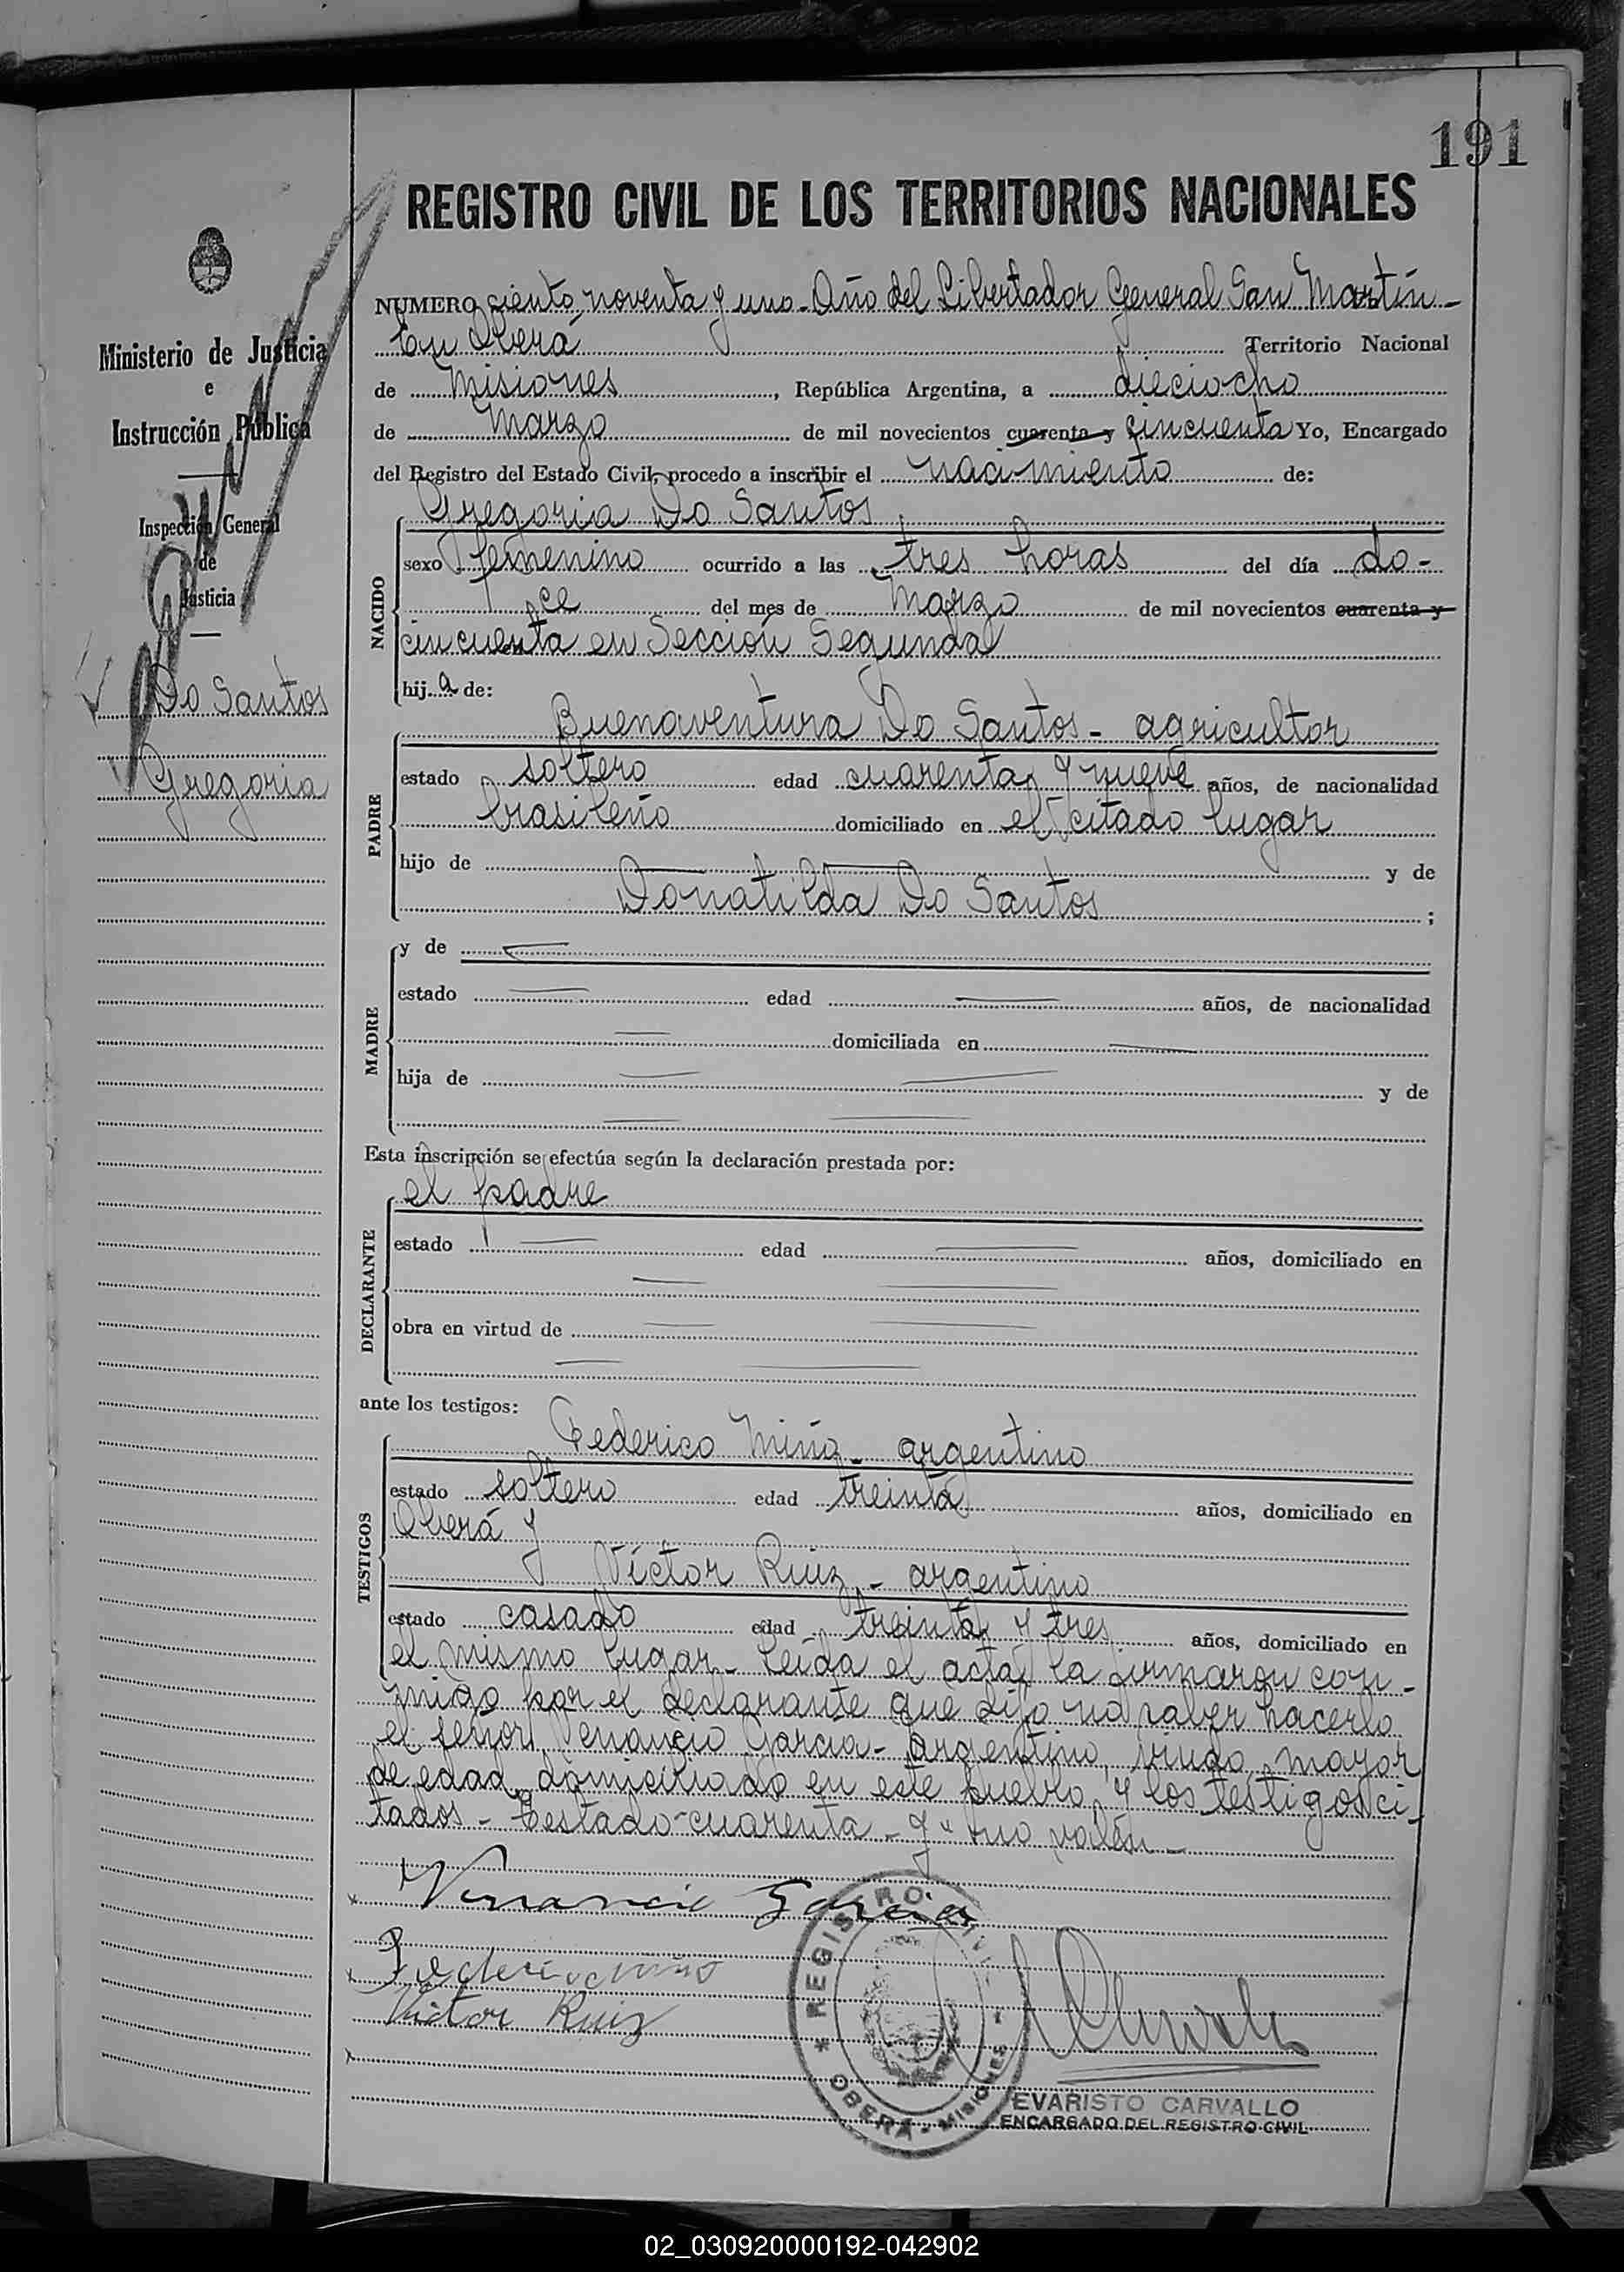 191
REGISTRO CIVIL DE LOS TERRITORIOS NACIONALES
Ministerio de Justicia
e
Instrucción Pública
Inspección General
de
Justicia
Do Santos
Gregoria
NUMERO ciento noventa y uno - Año del Libertador General San Martín -
En Oberá Territorio Nacional
de Misiones, República Argentina, a dieciocho
de Marzo de mil novecientos cuarenta y cincuenta Yo, Encargado
del Registro del Estado Civil, procedo a inscribir el nacimiento de:
Gregoria Do Santos
NACIDO
sexo femenino ocurrido a las tres horas del día do-
ce del mes de Marzo de mil novecientos cuarenta y
cincuenta en Sección Segunda
hija de:
PADRE
Buenaventura Do Santos - agricultor
estado soltero edad cuarenta y nueve años, de nacionalidad
brasileño domiciliado en el citado lugar
hijo de y de
Donatilda Do Santos ;
MADRE
y de
estado edad años, de nacionalidad
domiciliada en
hija de y de
Esta inscripción se efectúa según la declaración prestada por:
DECLARANTE
el padre
estado edad años, domiciliado en
obra en virtud de
ante los testigos:
TESTIGOS
Federico Miño - argentino
estado soltero edad treinta años, domiciliado en
Oberá y
Víctor Ruiz - argentino
estado casado edad treinta y tres años, domiciliado en
el mismo lugar - Leída el acta, la firmaron con-
migo por el declarante que dijo no saber hacerlo
el señor Venancio García - argentino, viudo, mayor
de edad, domiciliado en este pueblo y los testigos ci-
tados - Testado - cuarenta - y " no valen -
Venancio Garcia
Federico Miño
Victor Ruiz
* REGISTRO CIVIL *
OBERÁ - MISIONES
EVARISTO CARVALLO
ENCARGADO DEL REGISTRO CIVIL
02_030920000192-042902